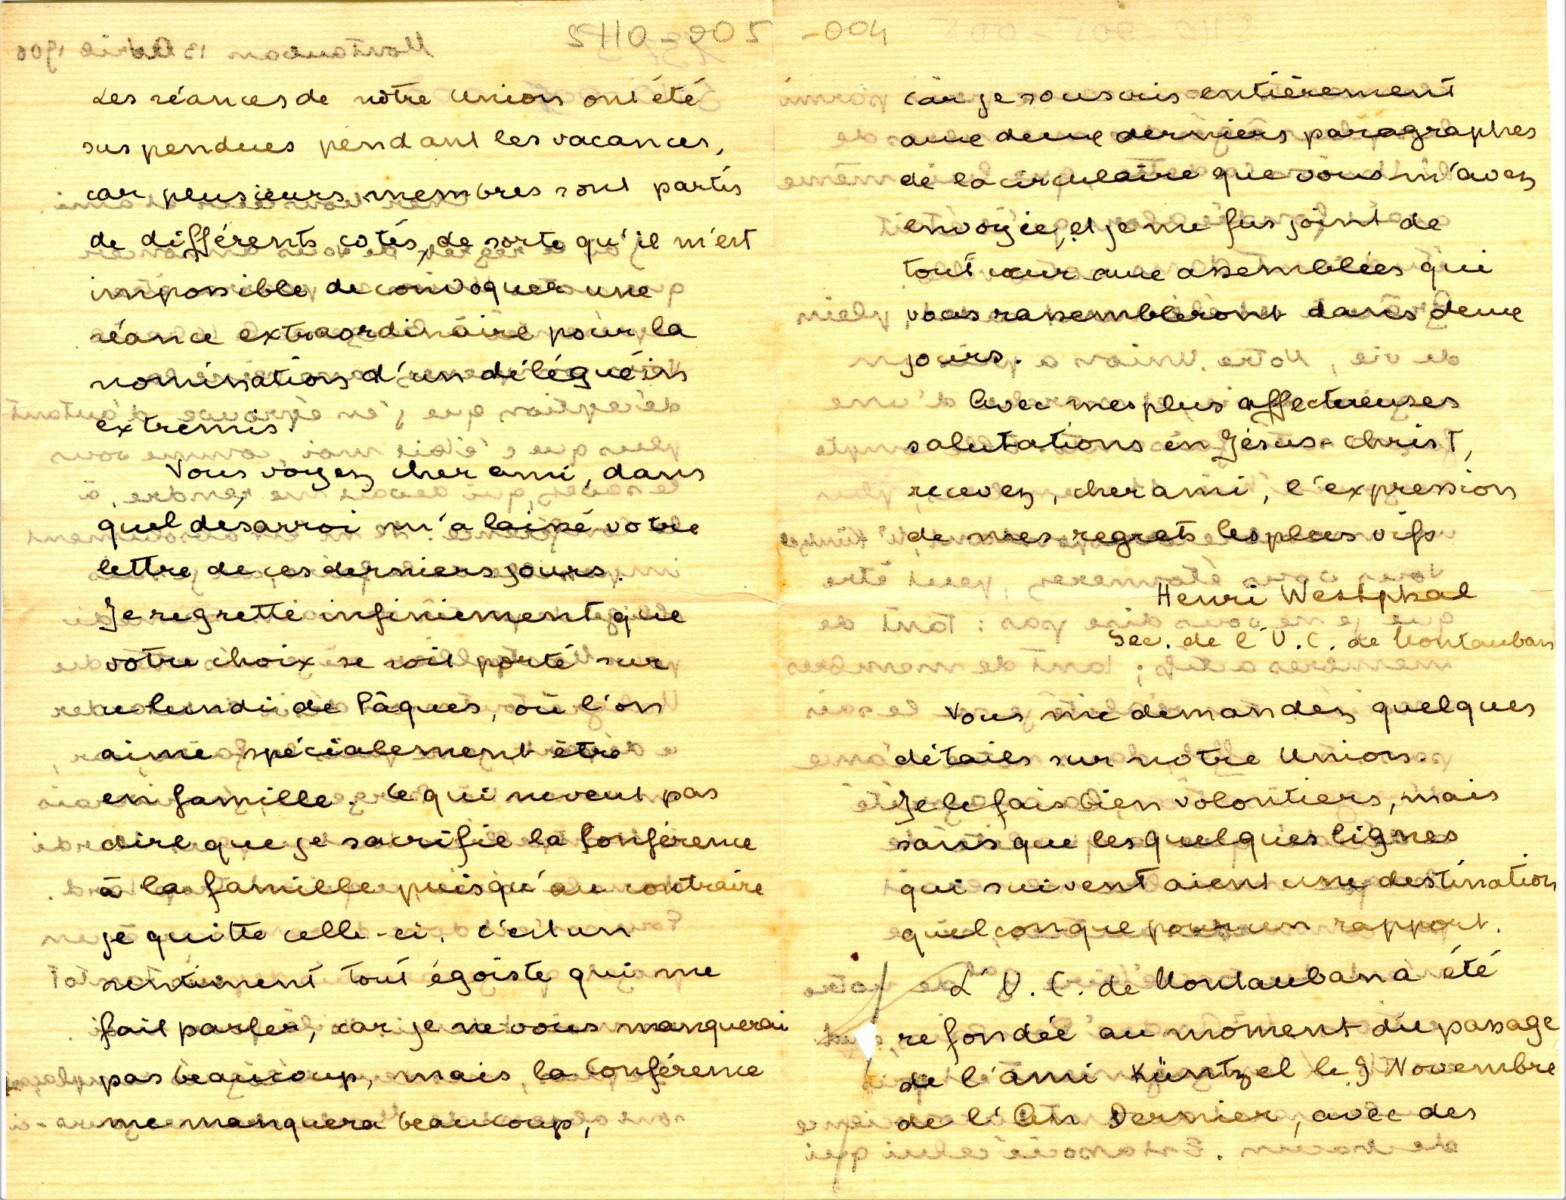 Les séances de notre Union ont été
suspendues pendant les vacances,
car plusieurs membres sont partis
de différents cotés, de sorte qu'il m'est
impossible de convoquer une
séance extraordinaire pour la
nomination d'un délégué in
extremis.
Vous voyez, cher ami, dans
quel désarroi m'a laissé votre
lettre de ces derniers jours.
Je regrette infiniement que
votre choix se soit porté sur
ce lundi de Pâques, où l'on
aime spécialement être
en famille. Ce qui ne veut pas
dire que je sacrifie la Conférence
à la famille puisqu'au contraire
je quitte celle-ci. C'est un
sentiment tout égoïste qui me
fait parler, car je ne vous manquerai
pas beaucoup, mais, la Conférence
me manquera beaucoup,
5110-005 -004
car je souscris entièrement
aux deux derniers paragraphes
de la circulaire que vous m'avez
envoyée, et je me fus joint de
tout cœur aux assemblées qui
vous rassembleront dans deux
jours.
Avec mes plus affectueuses
salutations en Jésus-Christ,
recevez, cher ami, l'expression
de mes regrets les plus vifs
Henri Westphal
Sec. de l'U.C. de Montauban
Vous me demandez quelques
détails sur notre Union.
Je le fais bien volontiers, mais
sans que les quelques lignes
qui suivent aient une destination
quelconque pour un rapport.
L'U.C. de Montauban a été
refondée au moment du passage
de l'ami Küntzel le 9 Novembre
de l'An Dernier, avec des